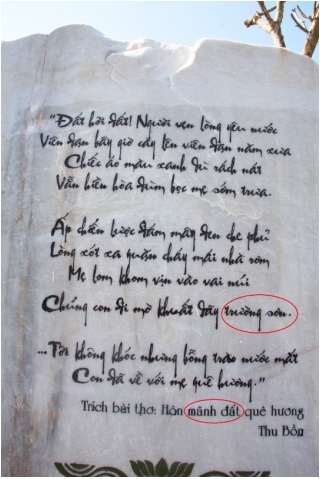 "Đất hỡi đất! Người vẹn lòng yêu nước
Viên đạn bây giờ cấy lên viên đạn năm xưa
Chiếc áo màu xanh dù rách nát
Vẫn hiền hòa đùm bọc mẹ sớm trưa.
Ấp chiến lược đám mây đen che phủ
Lòng xót xa quặn cháy mái nhà rơm
Mẹ lom khom vịn vào vai núi
Chúng con đi mờ khuất dãy trường sơn.
...Tôi không khóc nhưng bỗng trào nước mắt
Con đã về với mẹ quê hương."
Trích bài thơ: Hôn mãnh đất quê hương
Thu Bồn